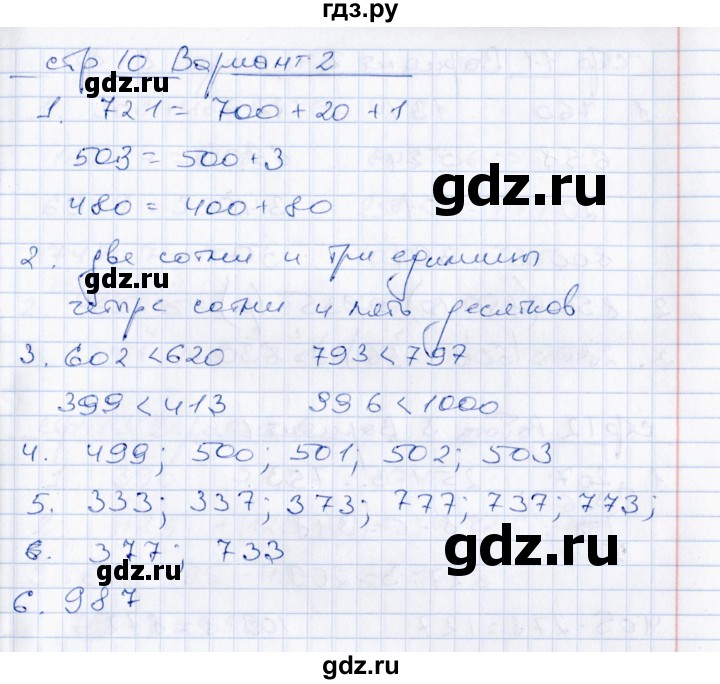 гдз.ру
стр 10 Вариант 2
1. 721 = 700 + 20 + 1
503 = 500 + 3
gdz.ru
480 = 400 + 80
2. две сотни и три единицы
четыре сотни и пять десятков
3. 602 < 620 793 < 797
gdz.ru
399 < 413 996 < 1000
4. 499; 500; 501; 502; 503
5. 333; 337; 373; 777; 737; 773;
6. 377; 733
gdz.ru
gdz.ru
6. 987
gdz.ru